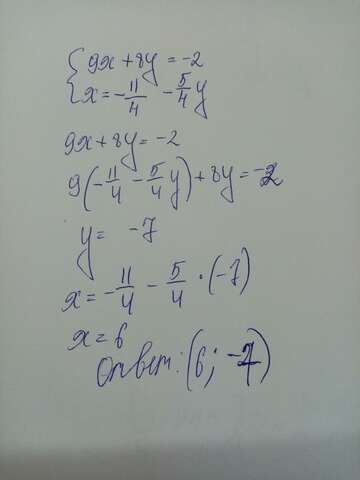 { 9x + 8y = -2
{ x = -11/4 - 5/4 y
9x + 8y = -2
9(-11/4 - 5/4 y) + 8y = -2
y = -7
x = -11/4 - 5/4 • (-7)
x = 6
Ответ: (6; -7)